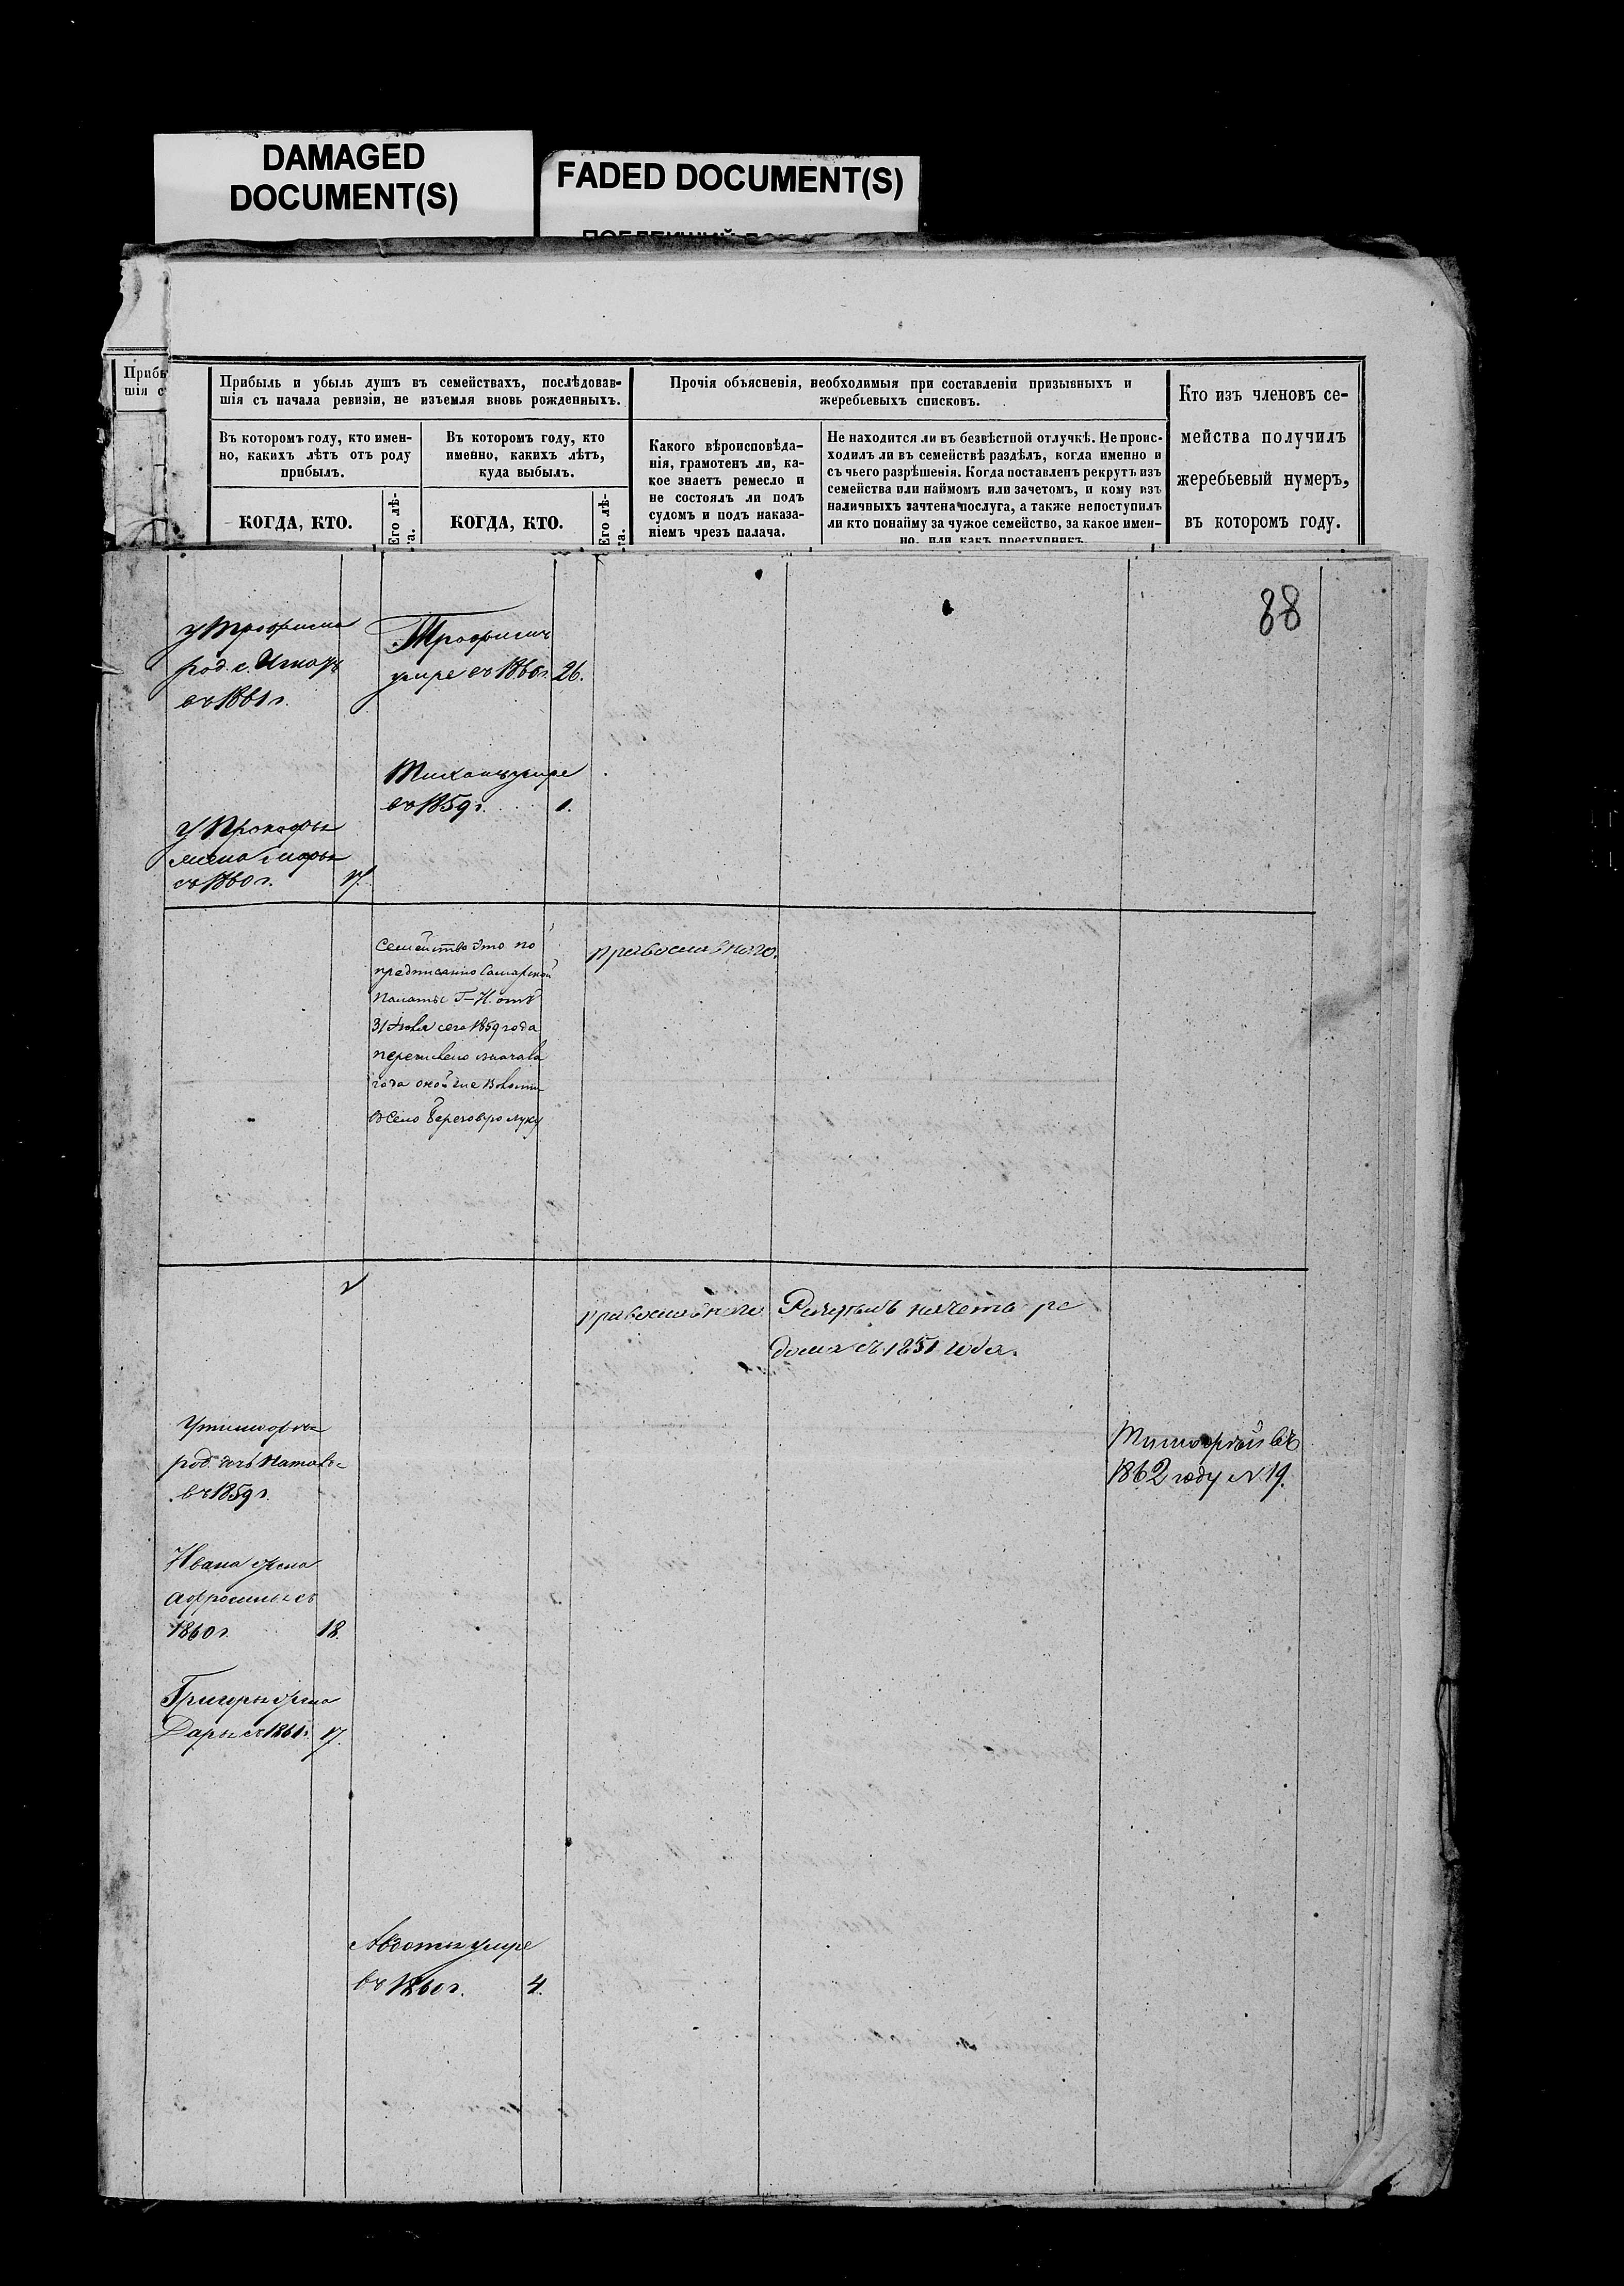 DAMAGED
DOCUMENT(S)
FADED DOCUMENT(S)
Прибы
шія с
Прибыль и убыль душъ въ семействахъ, послѣдовав-
шія съ начала ревизіи, не изъемля вновь рожденныхъ.
Въ которомъ году, кто имен-
но, какихъ лѣтъ отъ роду
прибылъ.
КОГДА, КТО.
Его лѣ-
та.
Въ которомъ году, кто
именно, какихъ лѣтъ,
куда выбылъ.
КОГДА, КТО.
Его лѣ-
та.
Прочія объясненія, необходимыя при составленіи призывныхъ и
жеребьевыхъ списковъ.
Какого вѣроисповѣда-
нія, грамотенъ ли, ка-
кое знаетъ ремесло и
не состоялъ ли подъ
судомъ и подъ наказа-
ніемъ чрезъ палача.
Не находится ли въ безвѣстной отлучкѣ. Не проис-
ходилъ ли въ семействѣ раздѣлъ, когда именно и
съ чьего разрѣшенія. Когда поставленъ рекрутъ изъ
семейства или наймомъ или зачетомъ, и кому изъ
наличныхъ зачтена послуга, а также непоступилъ
ли кто понайму за чужое семейство, за какое имен-
но, или какъ преступникъ.
Кто изъ членовъ се-
мейства получилъ
жеребьевый нумеръ,
въ которомъ году.
88
у Трофима
род. с.
въ 1861 г.
Трофимъ
умре въ 1860 г. 26.
умре
въ 1859 г. 1.
У Прокофья
жена Марья
съ 1860 г. 17.
Семейство это по
предписанію Самарской
Палаты Г–И. отъ
31 сего 1859 года
года
въ село
православнаго.
православнаго
съ 1851 года.
У Тимофея
род. дочь Наталья
въ 1859 г.
Тимофей въ
1862 году N 19.
Ивана жена
Афросинья съ
1860 г. 18.
Григорья жена
Дарья съ 1861 г. 17.
Авдотья умре
въ 1860 г. 4.